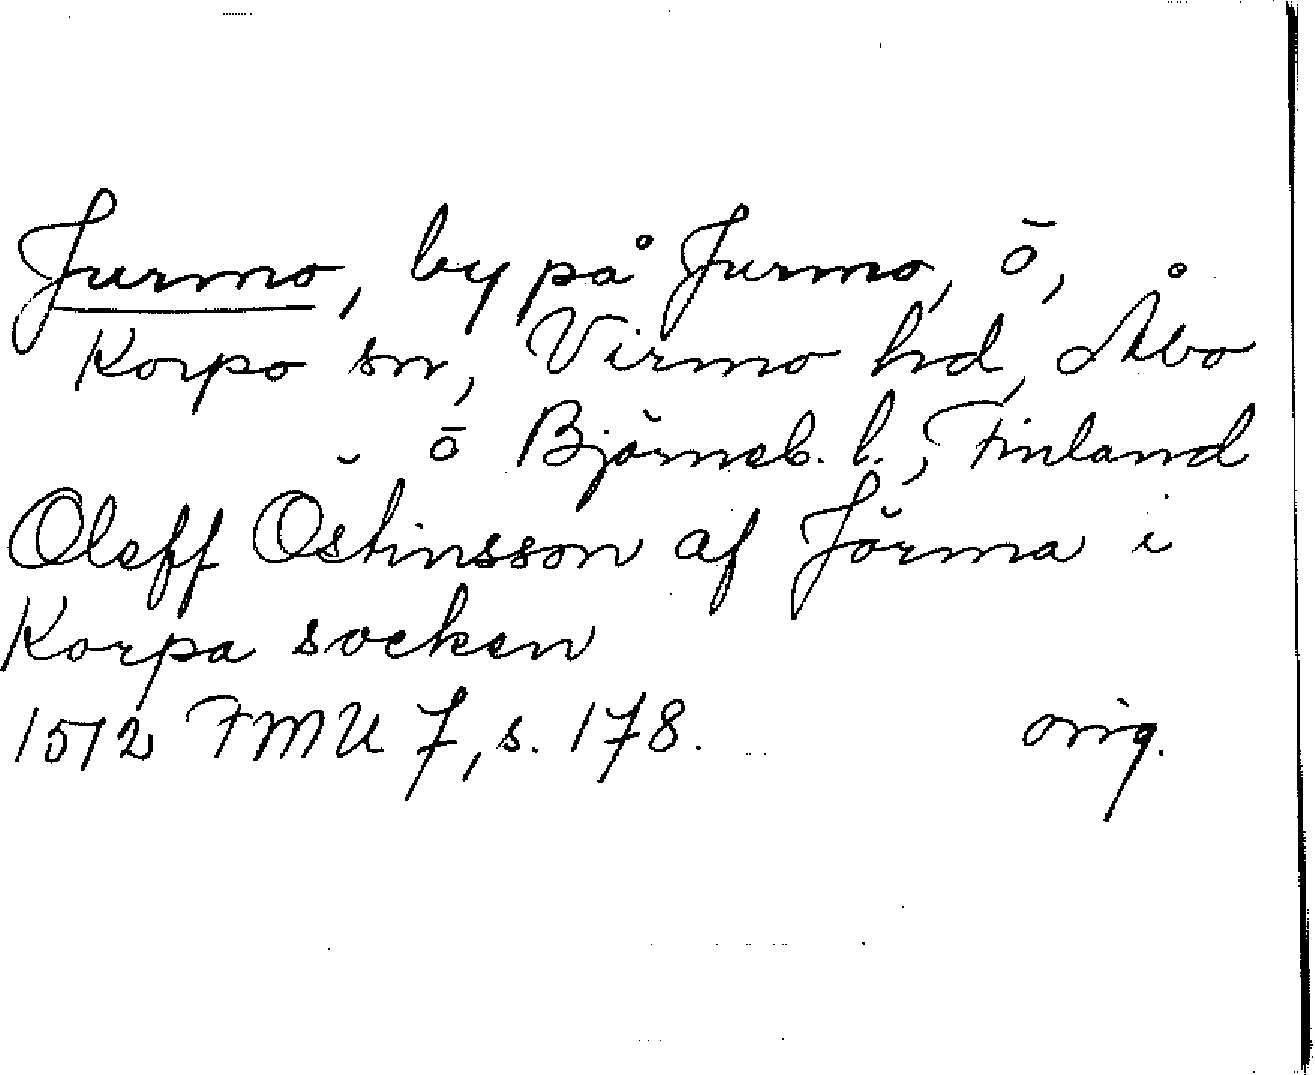 Jurmo, by på Jurmo, ö,
Korpo sn, Virmo hd, Åbo
- o Björneb. l., Finland
Oleff Ostinsson af Jörma i
Korpa socken
1512 FMU 7, s. 178. orig.